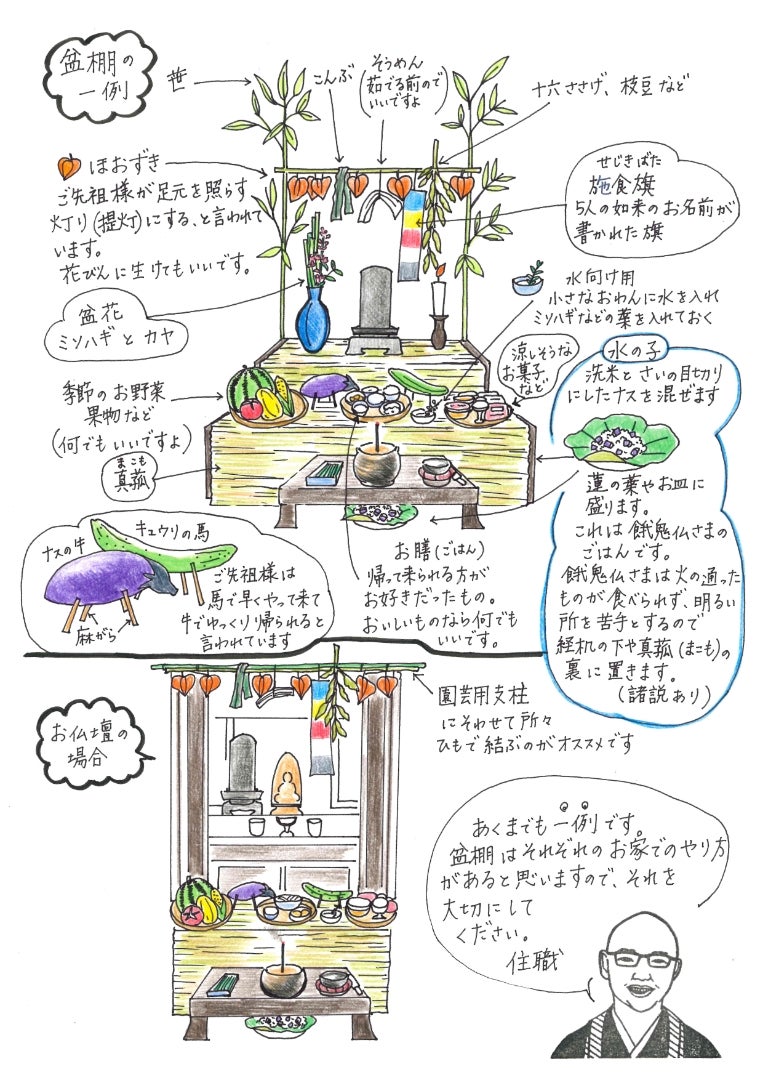 盆棚の
一例
笹
こんぶ
そうめん
(茹でる前ので
いいですよ)
十六ささげ、枝豆など
ほおずき
ご先祖様が足元を照らす
灯り(提灯)にする、と言われて
います。
花びんに生けてもいいです。
せじきばた
施食旗
5人の如来のお名前が
書かれた旗
盆花
ミソハギとカヤ
水向け用
小さなおわんに水を入れ
ミソハギなどの葉を入れておく
涼しそうな
お菓子
など
季節のお野菜
果物など
(何でもいいですよ)
まこも
真菰
水の子
洗米とさいの目切り
にしたナスを混ぜます
蓮の葉やお皿に
盛ります。
これは餓鬼仏さまの
ごはんです。
餓鬼仏さまは火の通った
ものが食べられず、明るい
所を苦手とするので
経机の下や真菰(まこも)の
裏に置きます。
(諸説あり)
ナスの牛
キュウリの馬
麻がら
ご先祖様は
馬で早くやって来て
牛でゆっくり帰られると
言われています
お膳(ごはん)
帰って来られる方が
お好きだったもの。
おいしいものなら何でも
いいです。
お仏壇の
場合
園芸用支柱
にそわせて所々
ひもで結ぶのがオススメです
あくまでも一例です。
盆棚はそれぞれのお家でのやり方
があると思いますので、それを
大切にして
ください。
住職